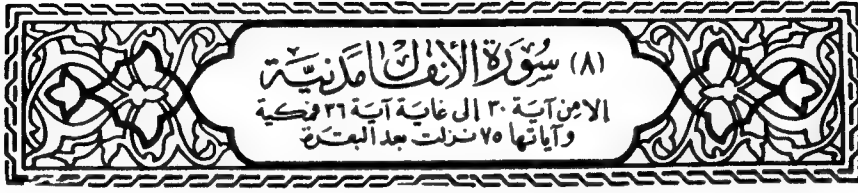 (٨) سُورَة الأنفال مَدنيَّة
إلا من آية ٣٠ إلى غاية آية ٣٦ فمكية
وآياتها ٧٥ نزلت بعد البقرة